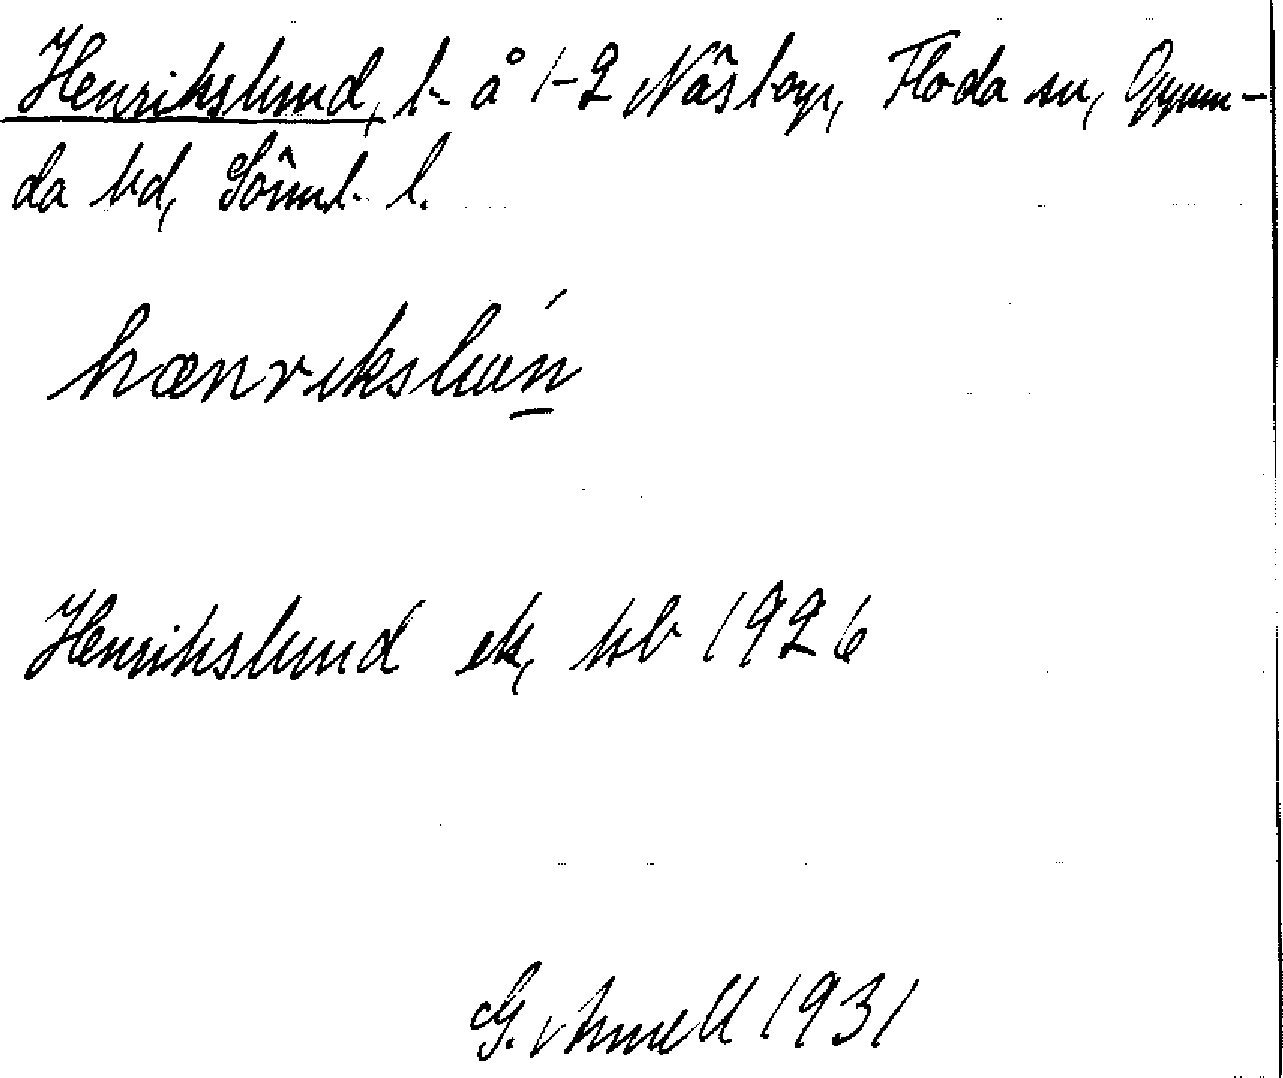 Henrikslund, l. å 1-2 Näsbyn, Floda sn, Oppun-
da hd, Söml. l.
hænriksluń̲
Henrikslund ek, kb 1926
G. Armell 1931